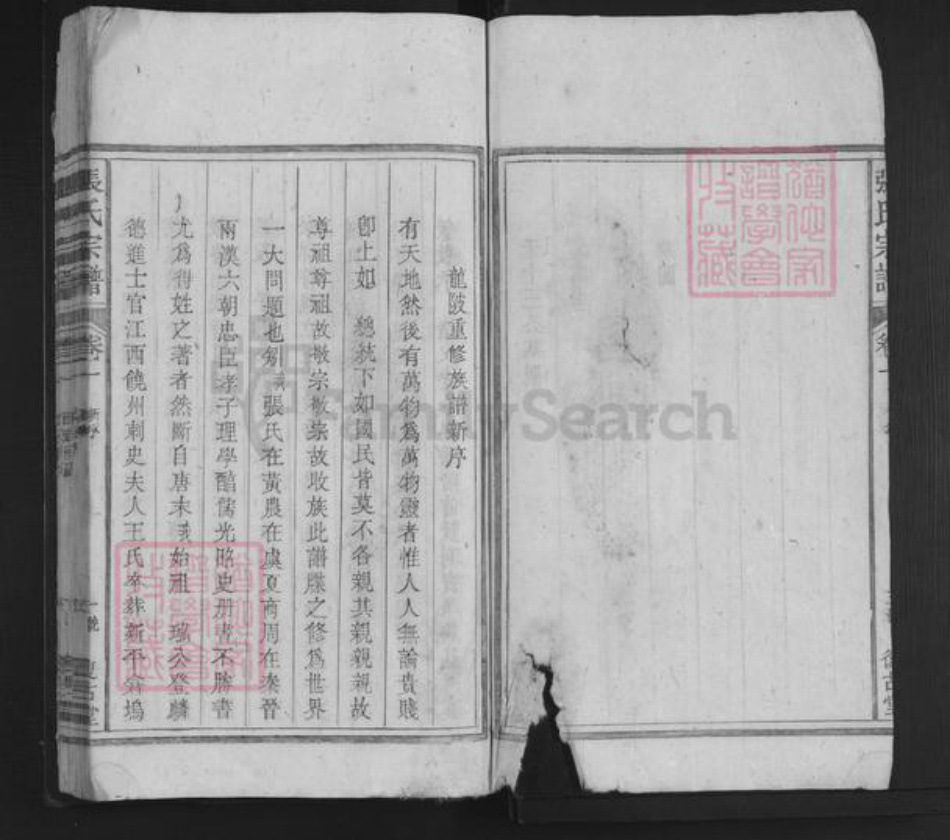 龍陂重修族譜新序
有天地然後有萬物爲萬物靈者惟人人無論貴賤
卽上如 總統下如國民皆莫不各親其親親親故
尊祖尊祖故敬宗敬宗故收族此譜牒之修爲世界
一大問題也我張氏在黃農在虞夏商周在秦晉
兩漢六朝忠臣孝子理學醇儒光昭史册書不勝書
尤爲得姓之著者然斷自唐末我始祖 瑞公登麟
德進士官江西饒州刺史夫人王氏卒葬新平塢
張氏宗譜
卷一
新序
復古堂
張氏宗譜
卷一
復古堂
譜學會
收藏
FamilySearch